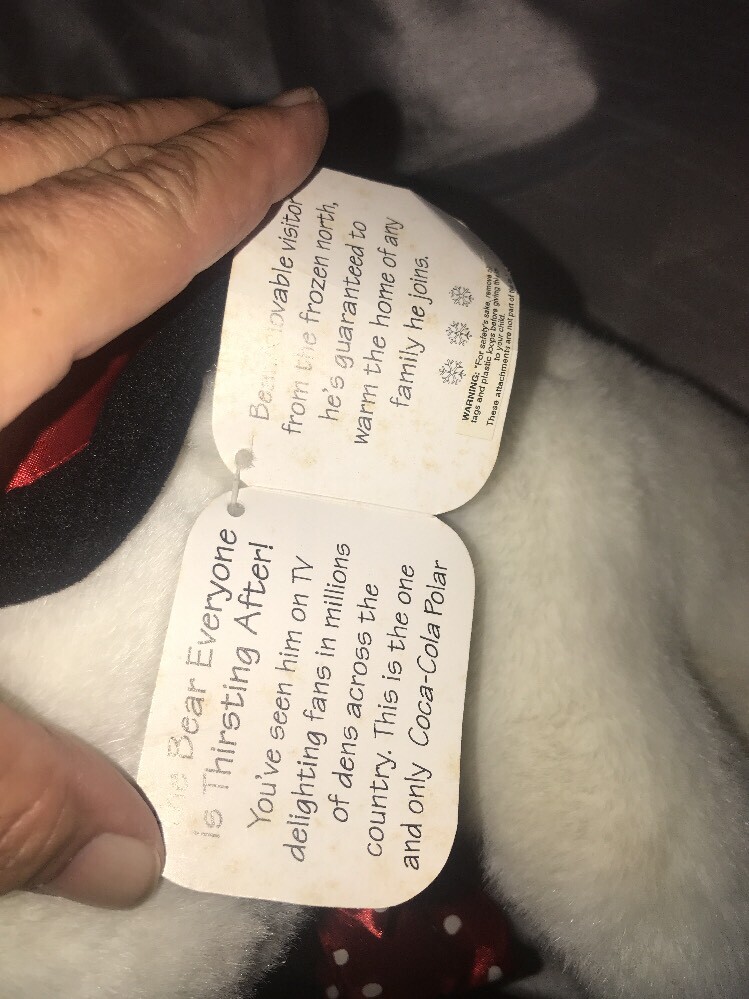 Bear Everyone
is Thirsting After!
You've seen him on TV
delighting fans in millions
of dens across the
country. This is the one
and only Coca-Cola Polar
lovable visitor
from the frozen north,
he's guaranteed to
warm the home of any
family he joins.
WARNING: "For safety's sake, remove
tags and plastic loops before giving
to your child.
These attachments are not part of